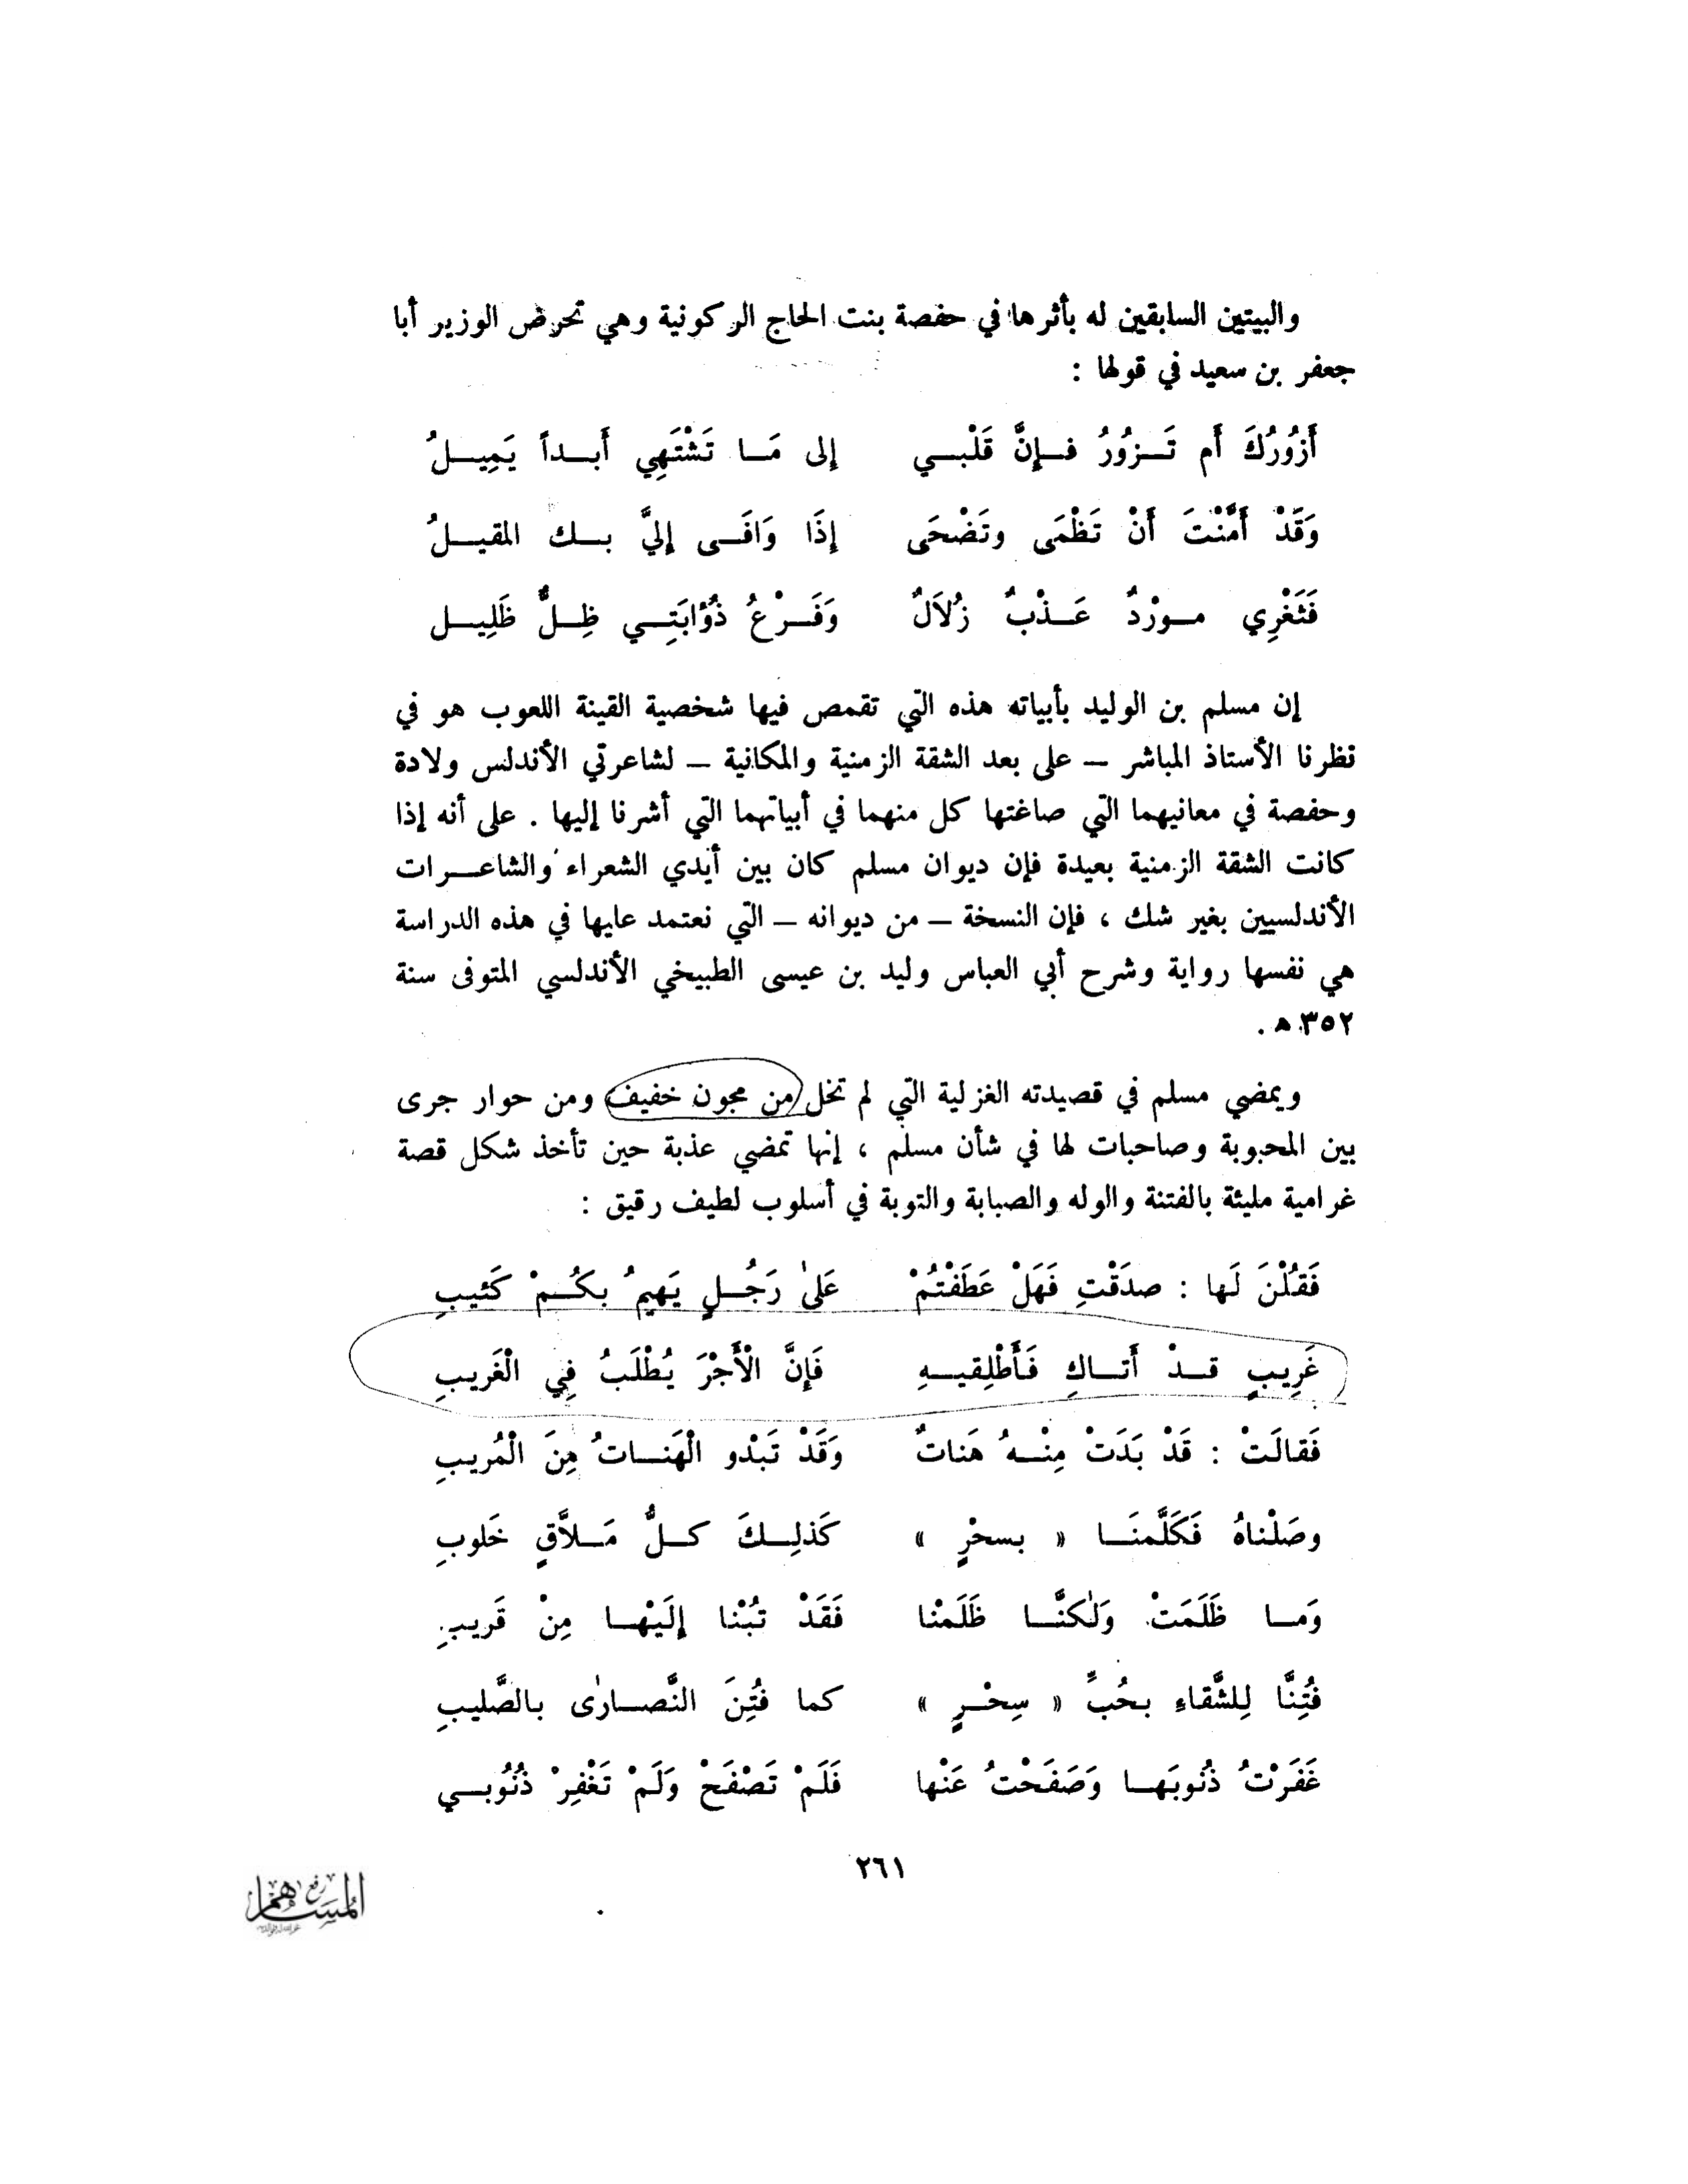 والبيتين السابقين له بأثرها في حفصة بنت الحاج الركونية وهي تحرض الوزير أبا
جعفر بن سعيد في قولها :
أَزُوُرُكَ أَم تَـزوُرُ فـإنَّ قَلْبـي إلى مَـا تَشْتَهِي أَبـداً يَمِيـلُ
وَقَدْ أَمَّنْتَ أَنْ تَظْمَى وتَضْحَى إذَا وَافَـى إليَّ بـك المقيـلُ
فَثَغْرِي مـورْدٌ عَـذْبٌ زُلاَلٌ وَفَـرْعُ ذُؤابَتِـي ظِـلٌّ ظَلِيـل
إن مسلم بن الوليد بأبياته هذه التي تقمص فيها شخصية القينة اللعوب هو في
نظرنا الأستاذ المباشر – على بعد الشقة الزمنية والمكانية – لشاعرتي الأندلس ولادة
وحفصة في معانيهما التي صاغتها كل منهما في أبياتهما التي أشرنا إليها . على أنه إذا
كانت الشقة الزمنية بعيدة فإن ديوان مسلم كان بين أيدي الشعراء والشاعـرات
الأندلسيين بغير شك ، فإن النسخة – من ديوانه – التي نعتمد عليها في هذه الدراسة
هي نفسها رواية وشرح أبي العباس وليد بن عيسى الطبيخي الأندلسي المتوفى سنة
٣٥٢ ه .
ويمضي مسلم في قصيدته الغزلية التي لم تخل من مجون خفيف ومن حوار جرى
بين المحبوبة وصاحبات لها في شأن مسلم ، إنها تمضي عذبة حين تأخذ شكل قصة
غرامية مليئة بالفتنة والوله والصبابة والتوبة في أسلوب لطيف رقيق :
فَقُلْنَ لَها : صدَقْتِ فَهَلْ عَطَفْتُمْ عَلىٰ رَجُـلٍ يَهيمُ بكُـمْ كَئيبِ
غَرِيبٍ قـدْ أَتـاكِ فَأَطْلِقيـهِ فَإنَّ الْأَجْرَ يُطْلَبُ فِي الْغَريبِ
فَقالَتْ : قَدْ بَدَتْ مِنْـهُ هَناتٌ وَقَدْ تَبْدو الْهَنـاتُ مِنَ الْمُريبِ
وصَلْناهُ فَكَلَّمنَـا « بسحْرٍ » كَذلِـكَ كـلُّ مَـلاَّقٍ خَلوبِ
وَمـا ظَلَمَتْ وَلٰكنَّـا ظَلَمْنا فَقَدْ تُبْنا إلَيْهـا مِنْ قَريبِ
فُتِنَّا لِلشَّقاءِ بحُبِّ « سِحْـرٍ » كما فُتِنَ النَّصـارٰى بالصَّليبِ
غَفَرْتُ ذُنُوبَهـا وَصَفَحْتُ عَنْها فَلَمْ تَصْفَحْ وَلَمْ تَغْفِرْ ذُنُوبـي
٢٦١
رفع
المساهم